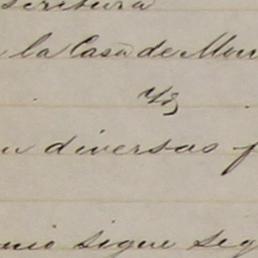 scritura
la Casa de Mur
diversas p
nio sigue seg